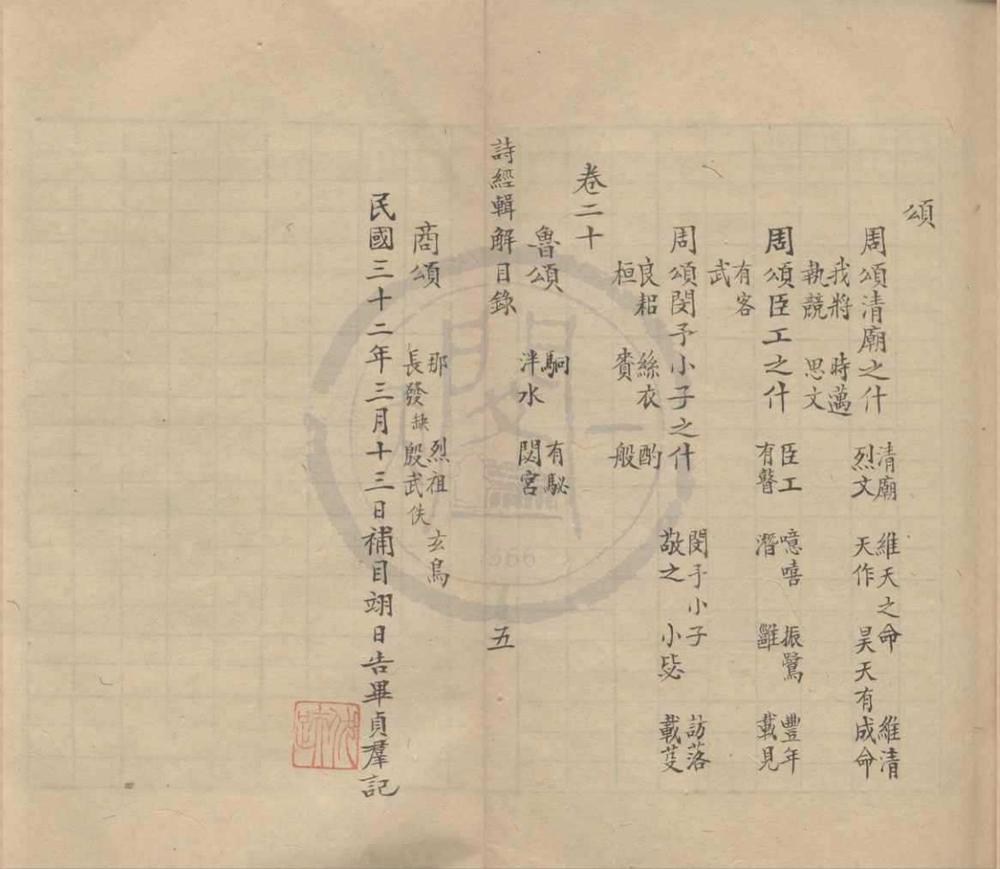 頌
周頌清廟之什
清廟 維天之命 維清
烈文 天作 昊天有成命
我將 時邁
執競 思文
周頌臣工之什
臣工 噫嘻 振鷺 豐年
有瞽 潛 雝 載見
有客
武
周頌閔予小子之什
閔予小子 訪落
敬之 小毖 載芟
良耜 絲衣 酌
桓 賚 般
卷二十
魯頌
駉 有駜
泮水 閟宮
詩經輯解目錄 五
商頌
那 烈祖 玄鳥
長發缺 殷武佚
民國三十二年三月十三日補目翊日告畢貞羣記